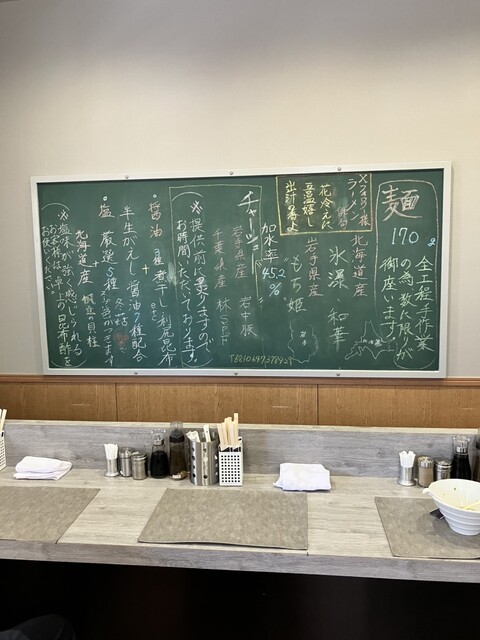 麺
170g
全工程手作業
の為数に限りが
御座います。
ラーメン
花冷えに
温嬉し
出汁の香よ
北海道産
氷瀑、和華
岩手県産
"もち姫"
加水率
45.2
%
チャーシュー
岩手県産 岩中豚
千葉県産 林SPF
※提供前に炙りますので
お時間いただいております。
醤油 煮干し・利尻昆布
+
半生がえし 醤油7種配合
塩 厳選5種
+
北海道産 帆立の貝柱
※塩味が強く感じられる
お客様は卓上の昆布酢を
お使いください。